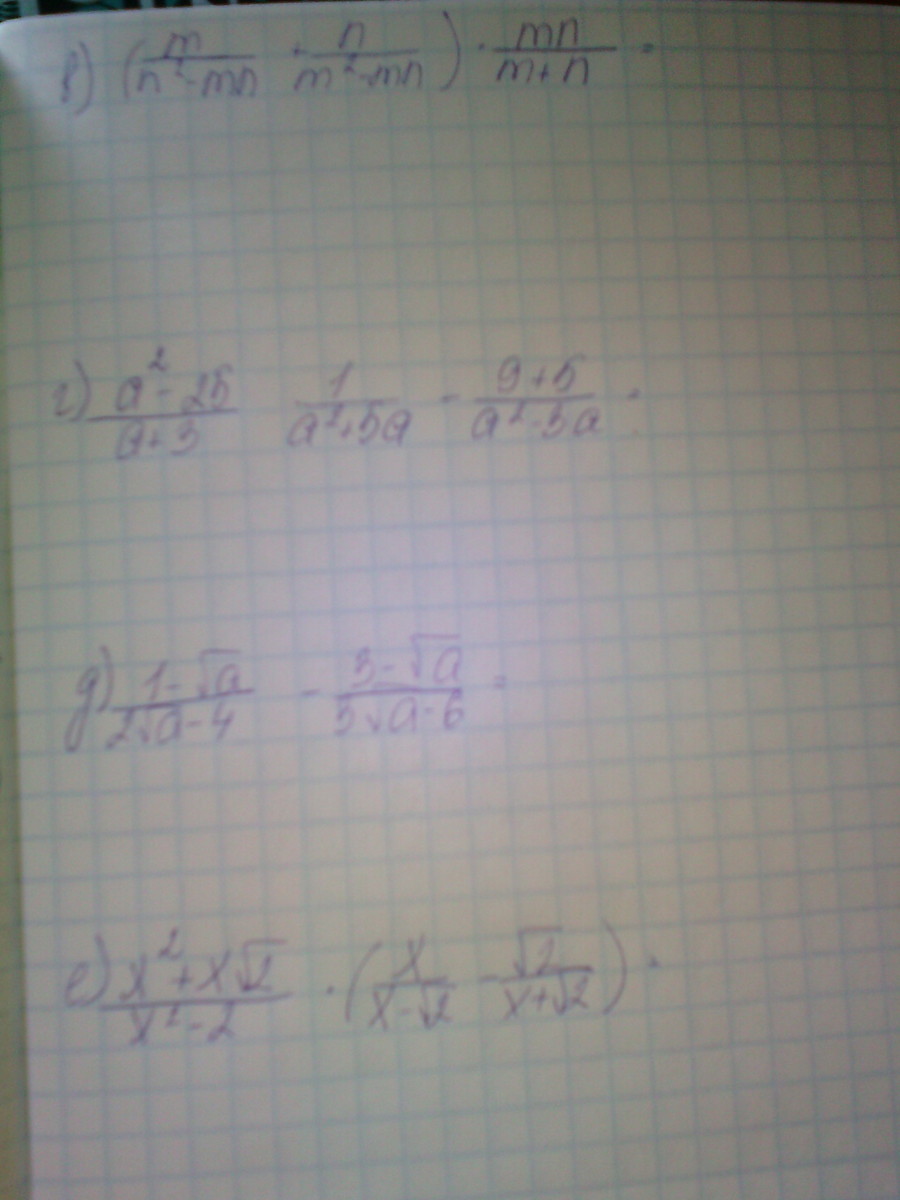 в) (m/(n²-mn) + n/(m²-mn)) · mn/(m+n) =
г) (a²-25)/(a+3) 1/(a²+5a) - (9+5)/(a²-3a) =
д) (1-√a)/(2√a-4) - (3-√a)/(3√a-6) =
е) (x²+x√2)/(x²-2) · (x/(x-√2) - √2/(x+√2)) =